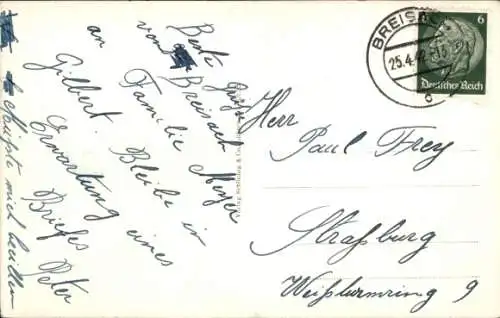 Beste Grüße
von Breisach
Familie Meyer
an Gilbert. Bleibe in
Erwartung eines
Briefes Peter
BREISACH
25.4.42
c
6
Deutsches Reich
Herr
Paul Frey
Straßburg
Weißturmring 9